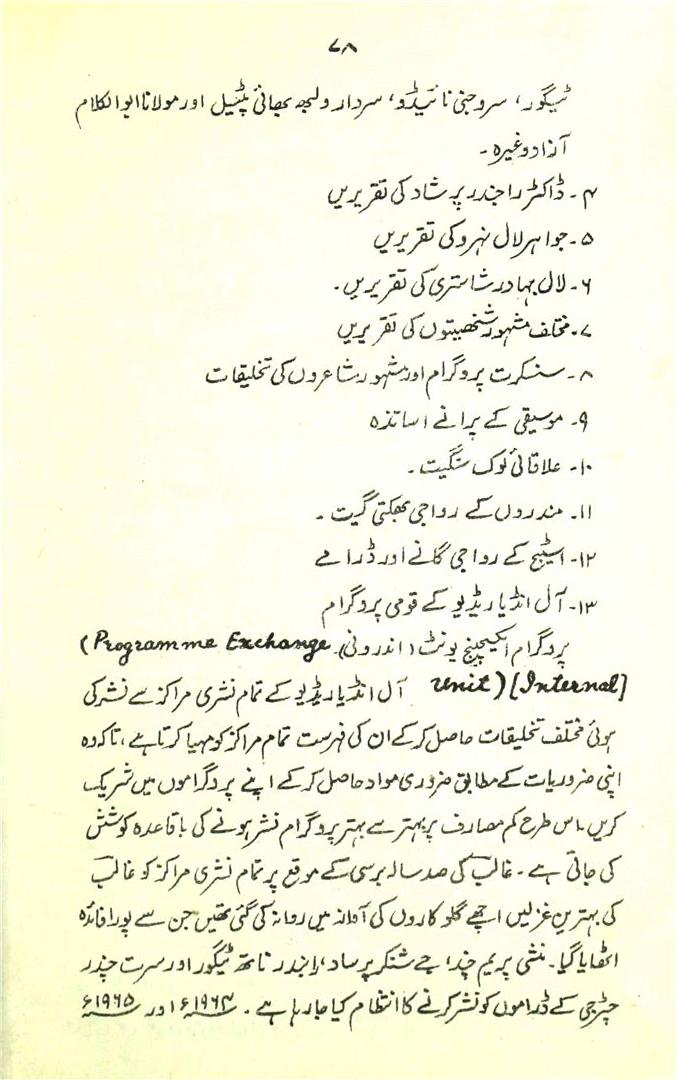 ۷۸
ٹیگور، سروجنی نائیڈو، سردار ولبھ بھائی پٹیل اور مولانا ابوالکلام
آزاد وغیرہ۔
۴۔ ڈاکٹر راجندر پرشاد کی تقریریں
۵۔ جواہر لال نہرو کی تقریریں
۶۔ لال بہادر شاستری کی تقریریں۔
۷۔ مختلف مشہور شخصیتوں کی تقریریں
۸۔ سنسکرت پروگرام اور مشہور شاعروں کی تخلیقات
۹۔ موسیقی کے پرانے اساتذہ
۱۰۔ علاقائی لوک سنگیت۔
۱۱۔ مندروں کے رواجی بھکتی گیت۔
۱۲۔ اسٹیج کے رواجی گانے اور ڈرامے
۱۳۔ آل انڈیا ریڈیو کے قومی پروگرام
پروگرام ایکسچینج یونٹ (اندرونی)۔ (Programme Exchange
Unit) [Internal] آل انڈیا ریڈیو کے تمام نشری مراکز سے نشر کی
ہوئی مختلف تخلیقات حاصل کرکے ان کی فہرست تمام مراکز کو مہیا کرتا ہے، تاکہ وہ
اپنی ضروریات کے مطابق ضروری مواد حاصل کرکے اپنے پروگراموں میں شریک
کریں۔ اس طرح کم مصارف پر بہتر سے بہتر پروگرام نشر ہونے کی باقاعدہ کوشش
کی جاتی ہے۔ غالبؔ کی صد سالہ برسی کے موقع پر تمام نشری مراکز کو غالبؔ
کی بہترین غزلیں اچھے گلوکاروں کی آواز میں روانہ کی گئی تھیں جن سے پورا فائدہ
اٹھایا گیا۔ منشی پریم چند، جے شنکر پرساد، رابندر ناتھ ٹیگور اور سرت چندر
چٹرجی کے ڈراموں کو نشر کرنے کا انتظام کیا جا رہا ہے۔ ۱۹۶۴ء اور ۱۹۶۵ء